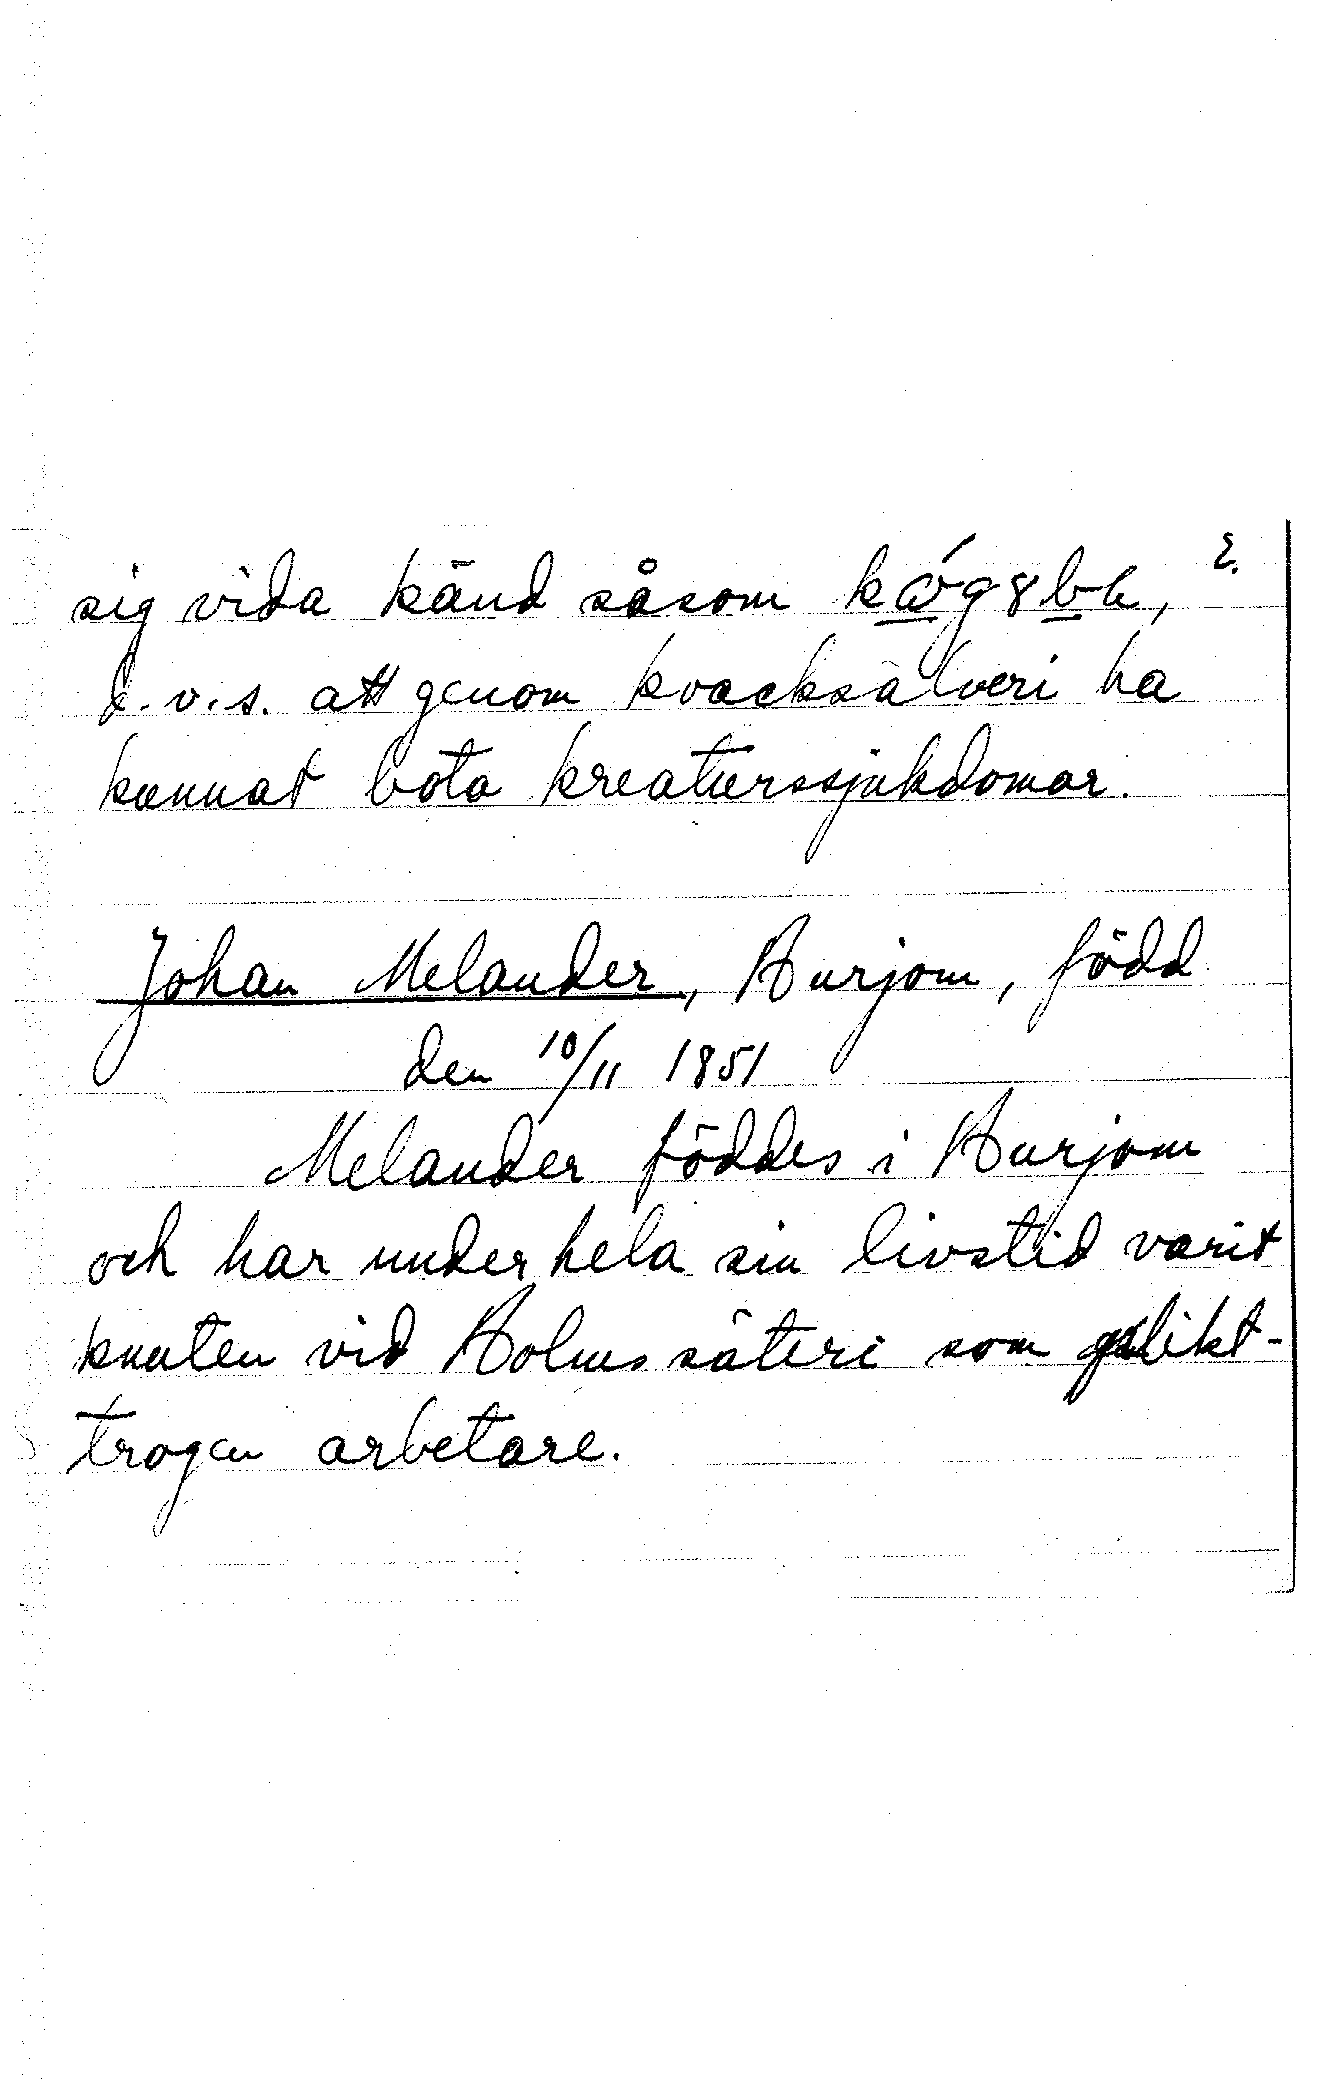 2.
sig vida känd såsom
d.v.s. att genom kvacksalveri ha
kunnat bota kreaturssjukdomar.
Johan Melander, Hurjom, född
den 10/11 1851
Melander föddes i Hurjom
och har under hela sin livstid varit
knuten vid Holms säteri som plikt-
trogen arbetare.